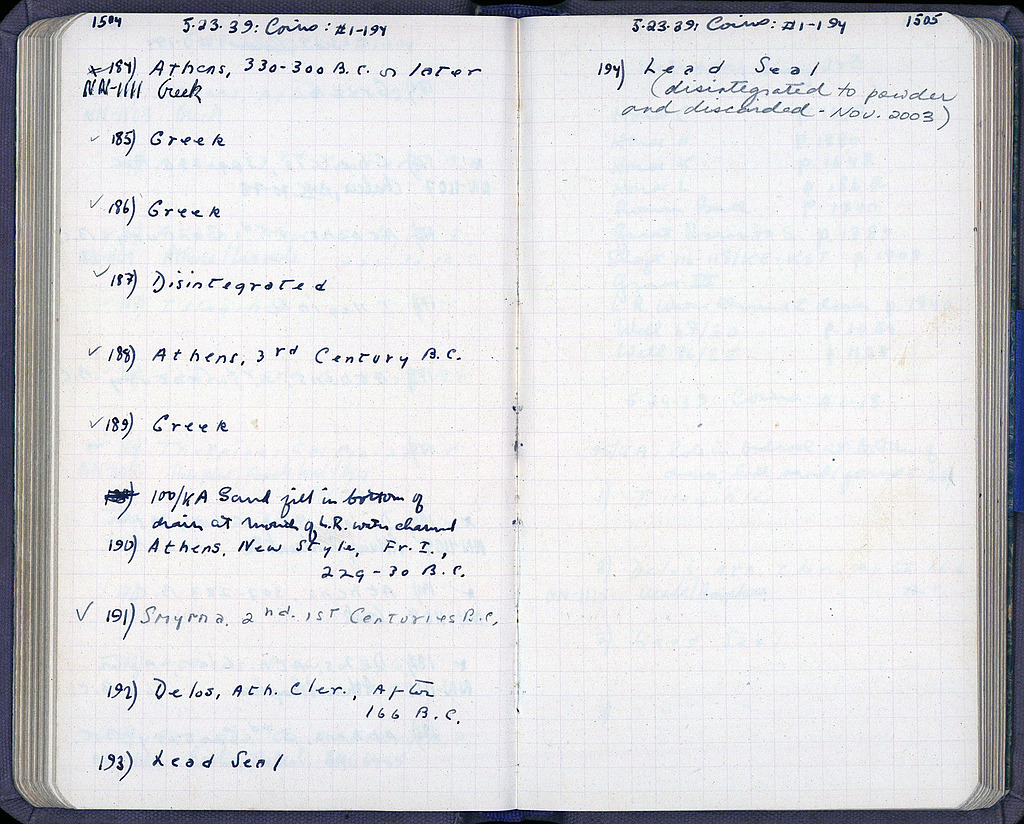 1504
5.23.39: Coins: #1-194
x 184) Athens, 330-300 B.C. or later
NN-1111 Greek
✓ 185) Greek
✓ 186) Greek
✓ 187) Disintegrated
✓ 188) Athens, 3rd Century B.C.
✓ 189) Greek
100/KA Sand fill in bottom of
drain at mouth of L.R. with channel
190) Athens, New Style, Fr. I.,
229-30 B.C.
✓ 191) Smyrna, 2nd. 1st Centuries B.C.
192) Delos, Ath. Cler., After
166 B.C.
193) Lead Seal
5.23.39: Coins: #1-194
1505
194) Lead Seal
(disintegrated to powder
and discarded - NOV. 2003)